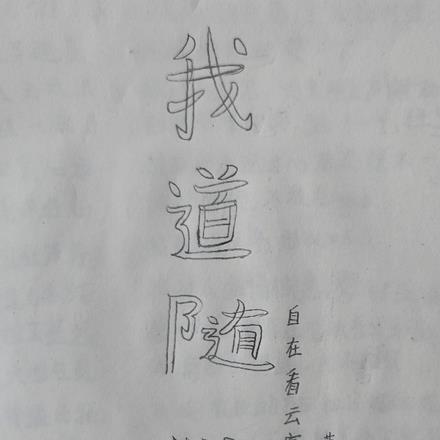 我道隨
自在看云